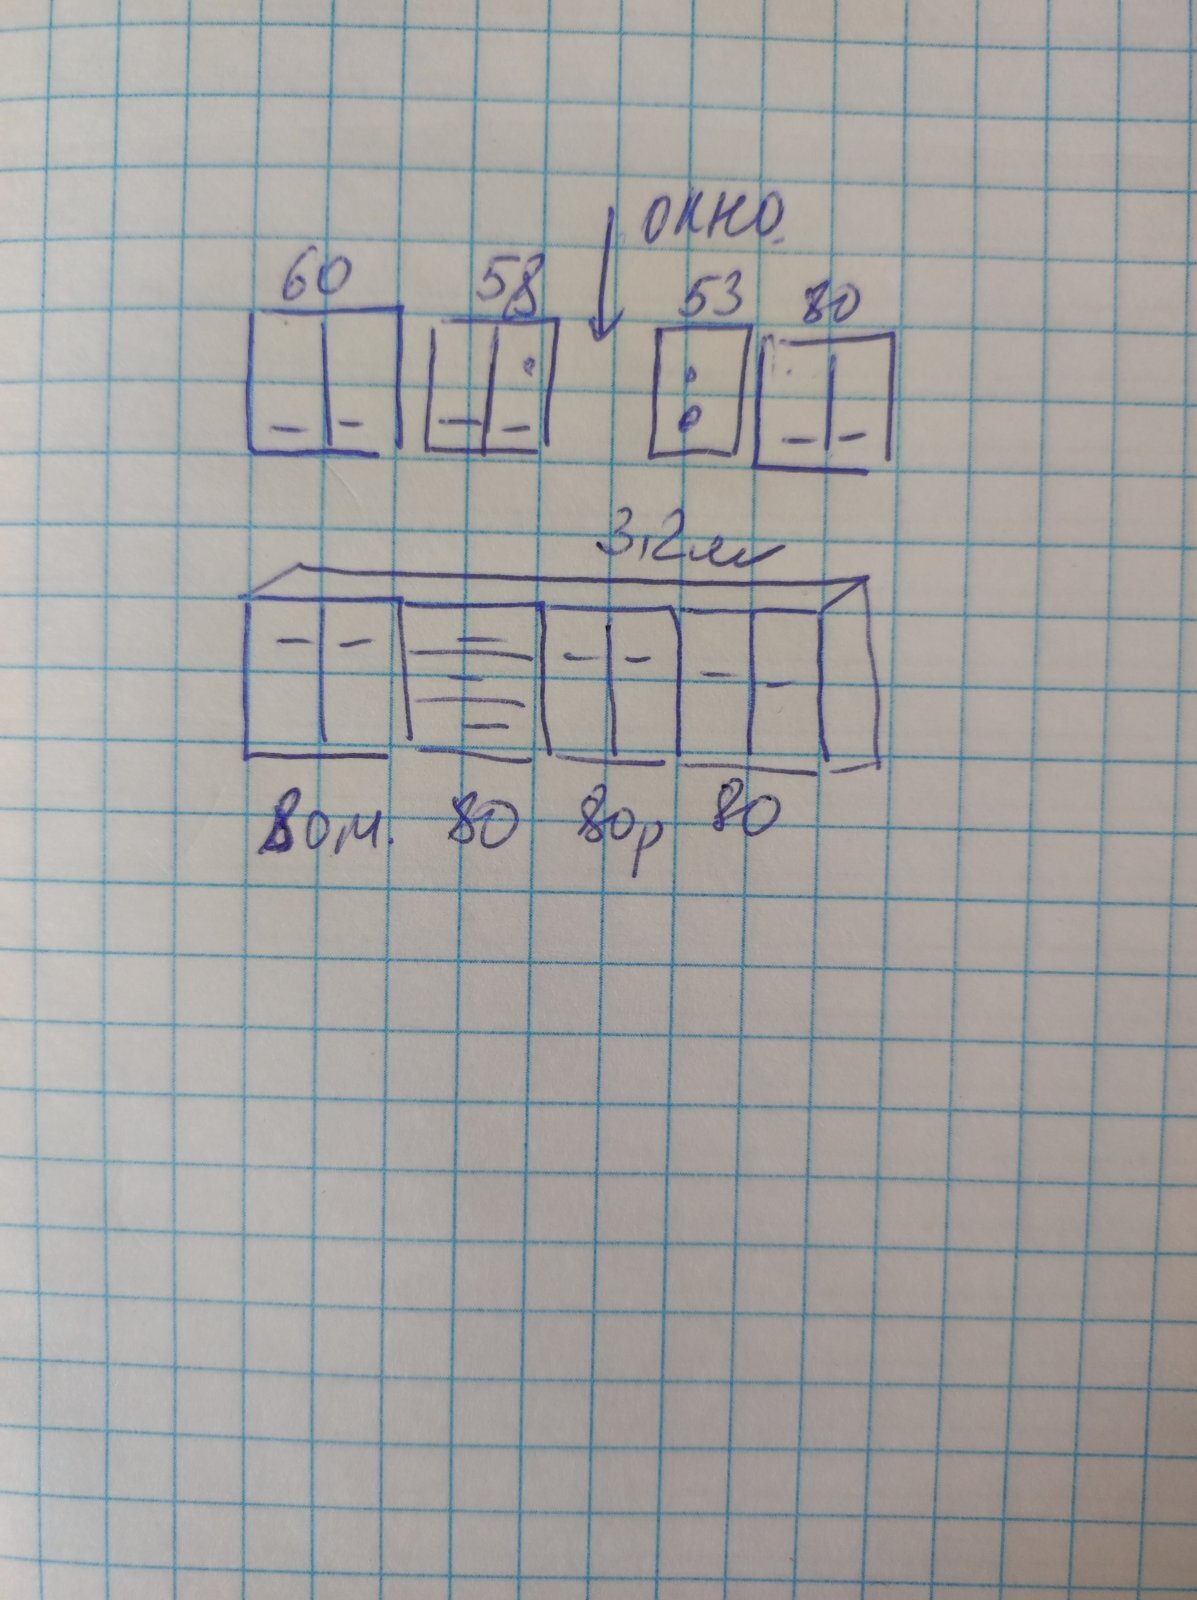 окно
60 58 53 80
3,2м
80м. 80 80р 80